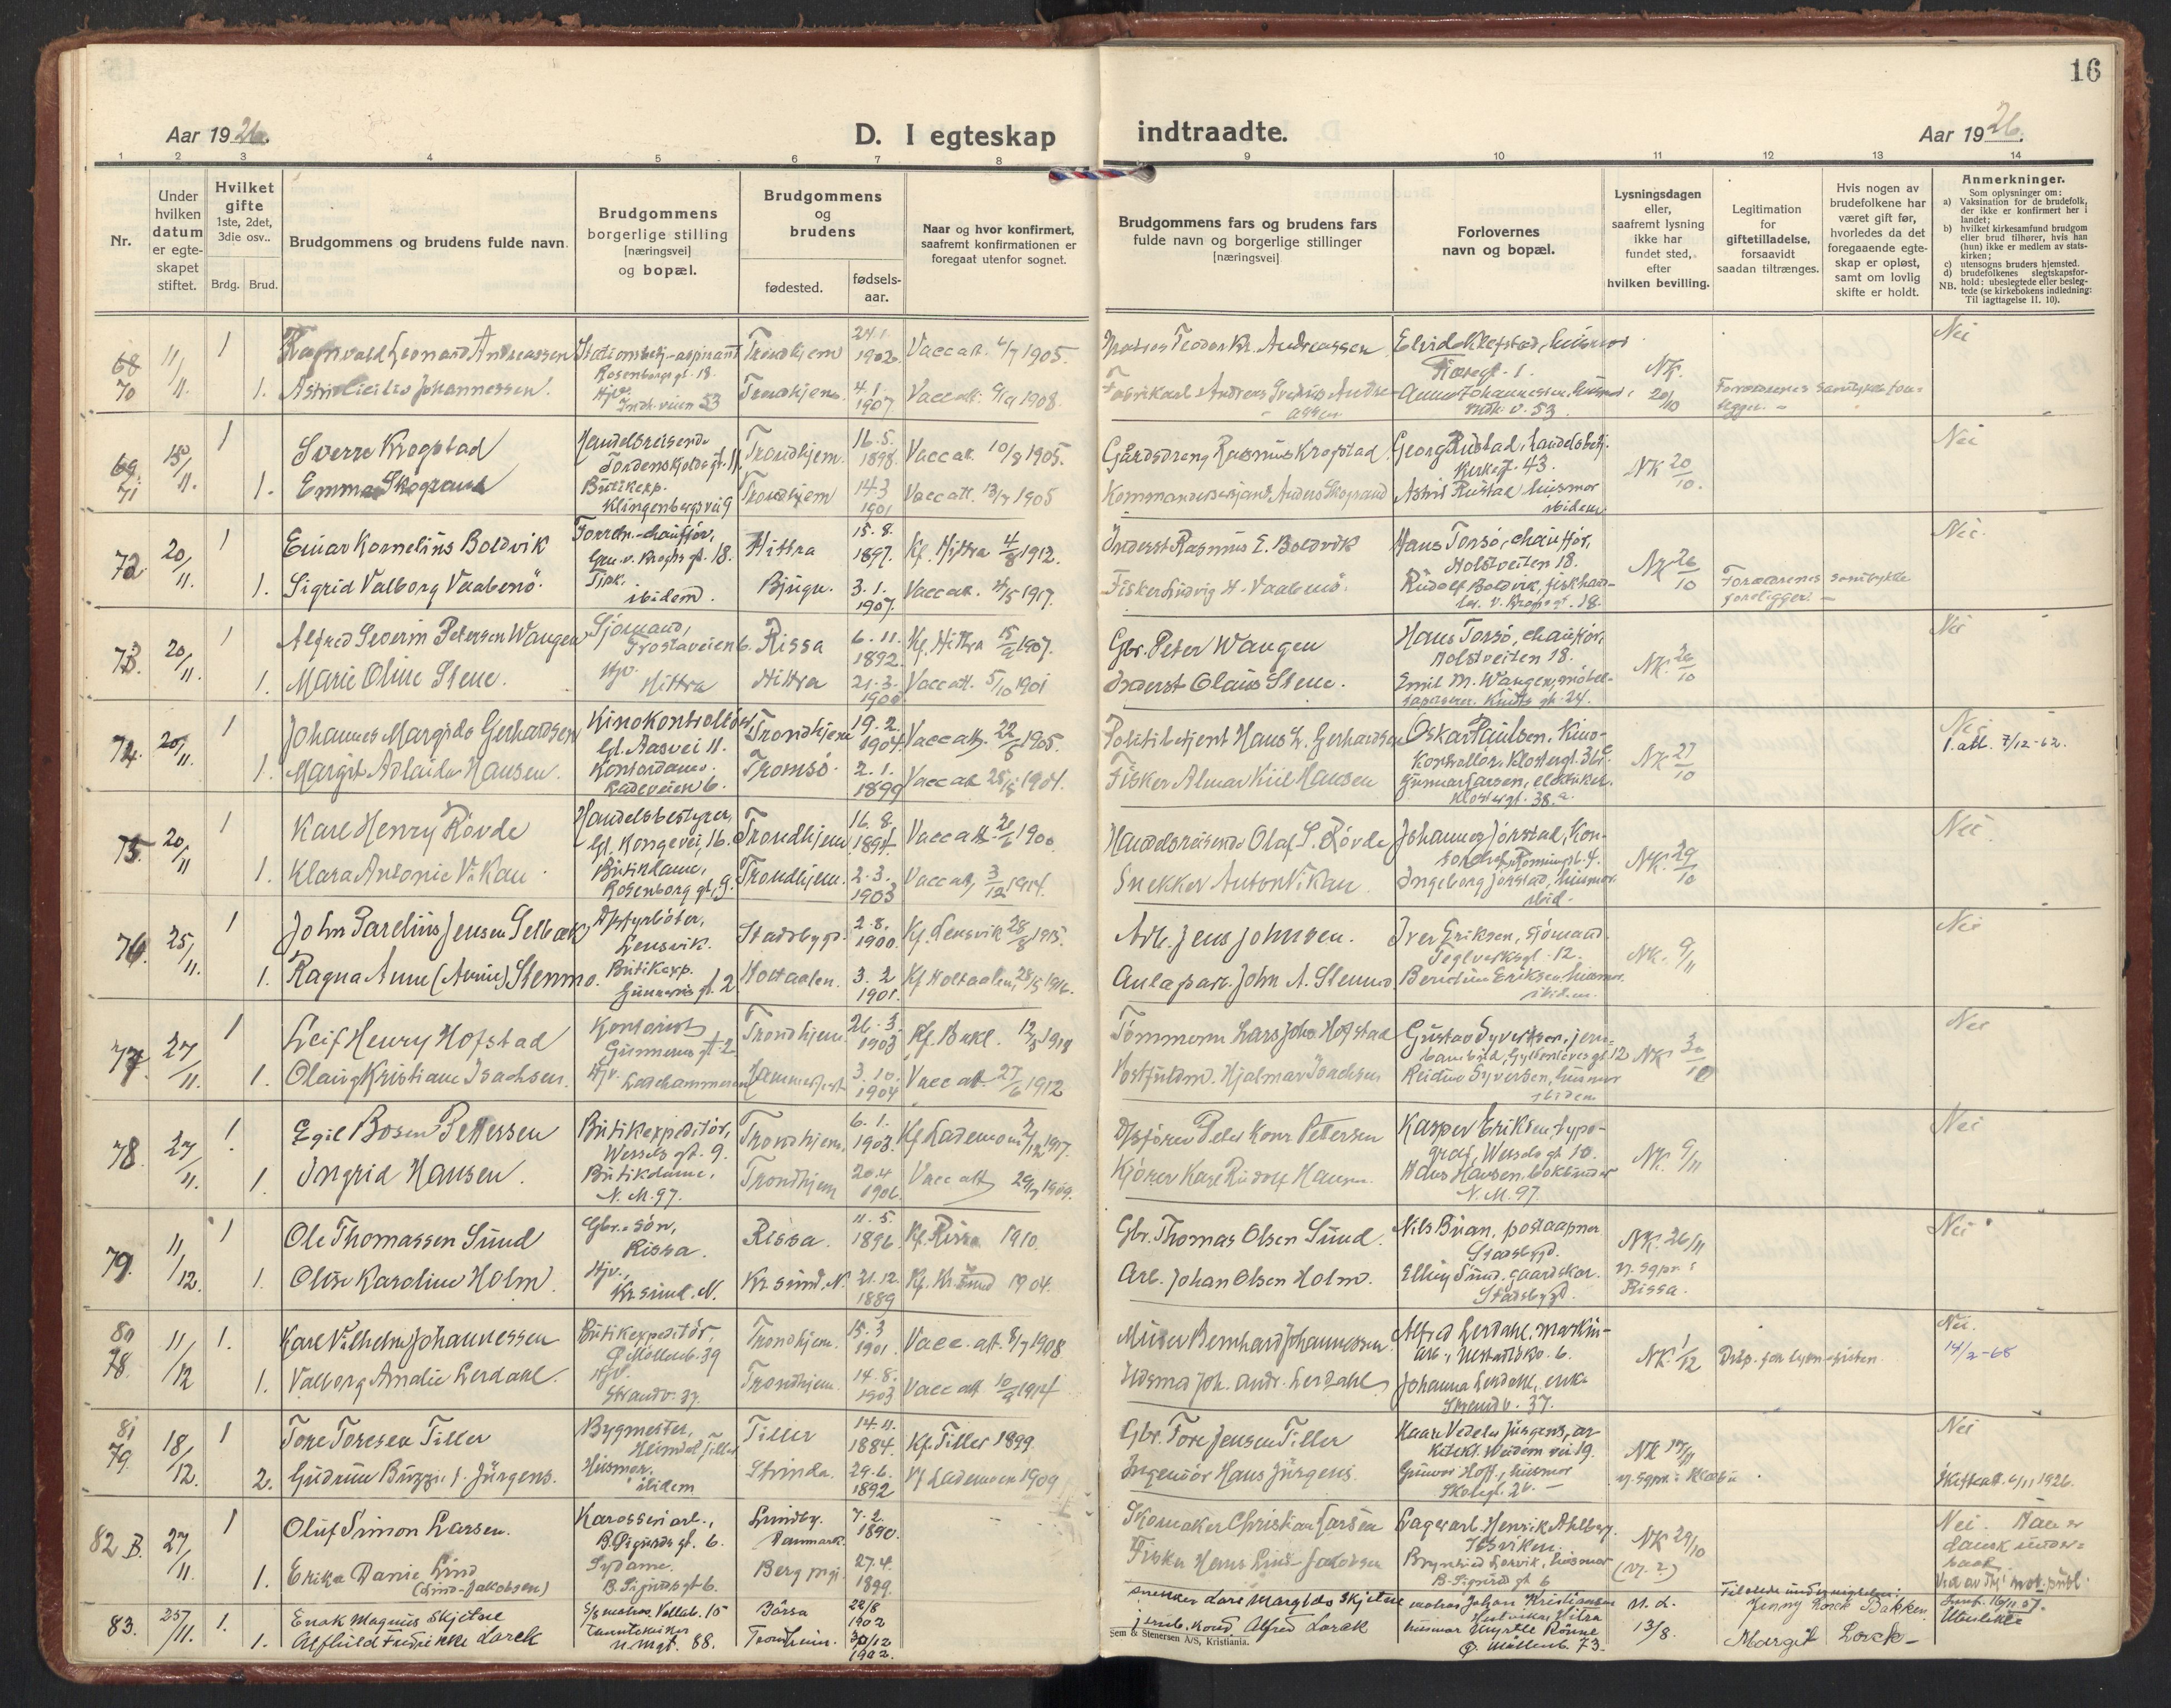 16
Aar 1926.
D. I egteskap
indtraadte.
Aar 1926.
1 2 3 4 5 6 7 8 9 10 11 12 13 14
Nr.
Under hvilken datum er egteskapet stiftet.
Hvilket gifte 1ste, 2det, 3die osv..
Brdg. Brud.
Brudgommens og brudens fulde navn.
Brudgommens borgerlige stilling [næringsvei] og bopæl.
Brudgommens og brudens
fødested.
fødselsaar.
Naar og hvor konfirmert, saafremt konfirmationen er foregaat utenfor sognet.
Brudgommens fars og brudens fars fulde navn og borgerlige stillinger [næringsvei]
Forlovernes navn og bopæl.
Lysningsdagen eller, saafremt lysning ikke har fundet sted, efter hvilken bevilling.
Legitimation for giftetilladelse, forsaavidt saadan tiltrænges.
Hvis nogen av brudefolkene har været gift før, hvorledes da det foregaaende egteskap er opløst, samt om lovlig skifte er holdt.
Anmerkninger.
Som oplysninger om:
a) Vaksination for de brudefolk, der ikke er konfirmert her i landet;
b) hvilket kirkesamfund brudgom eller brud tilhører, hvis han (hun) ikke er medlem av statskirken;
c) utensogns bruders hjemsted.
d) brudefolkenes slegtskapsforhold: ubeslegtede eller beslegtede (se kirkebokens indledning:
NB. Til iagttagelse II. 10).
68 70 11/11. 1 Ragnvald Leonard Andreassen Stationsbetj.-aspirant Rosenborg gt. 18. Trondhjem 24.1. 1902 Vacc att. 1905. Teodor Kr. Andreassen Elvid Klefstad, husmor NK. 20/10 Nei
1. Astrid Cicilie Johannessen. Hjv. Indh.veien 53 Trondhjem 4.1. 1907 Vacc att. 1908. Anna Johannessen, husmor Indh. v. 53. Forældrenes samtykke foreligger.
69 71 15/11. 1 Sverre Krogstad Handelsreisende Tordenskjolds gt. 11. Trondhjem. 16.5. 1898. Vacc att. 10/8 1905. Gårdsdreng Rasmus Krogstad Georg Rustad, handelsbetj. Kirkegt. 43. NK 20/10. Nei
1. Emma Skogrand Butikexp. Klingenbergsvei 9 Trondhjem 14.3 1901 Vacc att. 1905 Kommandersersjant Anders Skogrand Astrid Rustad husmor ibidem
72. 20/11. 1 Einar Kornelius Boldvik Forretn.-chauffør, Gen. v. Kroghs gt. 18. Hittra 15.8. 1897. Kf. Hittra 4/8 1912. Inderst Rasmus E. Boldvik Hans Tonsø, chauffør, Holstveiten 18. NK 26/10 Nei
1. Sigrid Valborg Vaabenø. Tjpk. ibidem. Bjugn. 3.1. 1907. Vacc att. 1917. Fisker Ludvig H. Vaabenø. Rudolf Boldvik, fiskhandler. v. Kroghs gt. 18. Forældrenes samtykke foreligger.
73. 20/11. 1 Alfred Severin Petersen Wangen Sjømand, Frostaveien 6. Rissa 6.11. 1892. Kf. Hittra 15/9 1907. Gbr. Peter Wangen Hans Tonsø, chauffør, Holstveiten 18. NK. 26/10 Nei
1. Marie Oline Stene. Hjv. Hittra Hittra 21.3. 1900 Vacc att. 5/10 1901 Inderst Olaus Stene. Emil M. Wangen, møbeltapetserer. Knuts gt. 24.
74. 20/11. 1 Johannes Margido Gerhardsen Kinokontrollør Gl. Aasvei 11. Trondhjem 19.2. 1904 Vacc att. 22/6 1905. Politibetjent Hans L. Gerhardsen Oskar Paulsen, Kinokontrollør, Klostergt. 36 NK 27/10 Nei 1. att. 7/12-62.
1 Margit Adelaide Hansen. Kontordame. Ladeveien 6. Tromsø. 2.1. 1899 Vacc att. 1901. Fisker Almar Kiil Hansen Gunnar Larsen, elektriker. Klostergt. 38. a.
75. 20/11 1 Karl Henry Røvde Handelsbestyrer, Gl. Kongevei, 16. Trondhjem. 16.8. 1894. Vacc att 1900 Handelsreisende Olaf S. Røvde Johannes Jørstad, NK. 29/10 Nei
1. Klara Antonie Vikan. Butikdame, Rosenborg gt. 9. Trondhjem. 2.3. 1903 Vacc att. 3/12 1914. Snekker Anton Vikan Ingeborg Jørstad, husmor ibid.
76. 25/11. 1 John Parelius Jensen Selbæk Dpfyrbøter, Lensvik. Stadsbygd. 2.8. 1900. Kf. Lensvik 28/8 1915. Arb. Jens Johnsen. Iver Eriksen, sjømand. Teglverksgt. 12. NK. 9/11 Nei
1. Ragna Anne (Annie) Stenmo. Butikexp. Gunnerus gt. 2. Holtaalen. 3.2 1901. Kf Holtaalen, 1916. John A. Stenmo Eriksen, husmor. ibidem.
77. 27/11. 1 Leif Henry Hofstad Kontorist Gunnerus gt. 2 Trondhjem. 26.3. 1903 Kf. Bakl. 1918 Tømmerm Lars Johs Hofstad Gustav Syvertsen, jernbanebud, Gyldenløves gt 12 NK 30/10 Nei
1. Olaug Kristiane Isachsen. Hjv. Ladehammeren Hammerfest 3.10. 1904 Vacc att. 27/6 1912 Postfuldm. Hjalmar Isachsen Reidun Syversen, husmor ibidem
78. 27/11. 1 Egil Bosen Pettersen Butikexpeditør, Wessels gt. 9. Trondhjem. 6.1. 1903. Kf. Lademoen 1917. Peter Petersen Kasper Eriksen, typograf, Wessels gt 10. NK. 9/11 Nei
1. Ingrid Hansen. Butikdame, N. M. 97. Trondhjem 20.4 1906 Vacc att 1909. Kjører Karl Rudolf Hansen. Hans Hansen bokbinder N. M. 97.
79. 11/12. 1 Ole Thomassen Sund Gbr.-søn, Rissa. Rissa. 11.5. 1896. Kf. Rissa 1910. Gbr. Thomas Olsen Sund. Nils Buan, postaapner Stadsbygd. NK. 26/11 Nei
1. Oline Karoline Holm. Hjv., Kr.sund. N. Kr.sund. N. 21.12. 1889 Kf. Kr.sund 1904. Arb. Johan Olsen Holm. Elling Sund. gaardskar. Stadsbygd. Rissa.
80 78. 11/12 1. Karl Vilhelm Johannessen Butikexpeditør, Ø. Møllenb. 39 Trondhjem. 15.3 1901. Vacc. att. 8/7 1908 Murer Bernhard Johannessen. Alfred Lerdahl, maskinarb., 6. NK. 1/12 Disp. for lysn.-fristen. Nei. 14/2-68
1. Valborg Amalie Lerdahl. Hjv. Strandv. 37. Trondhjem. 14.8. 1903 Vacc att 10/9 1914 Joh. Andr. Lerdahl Johanna Lerdahl, enke Strandv. 37.
81 79. 18/12. 1 Tore Toresen Tiller Bygmester, Heimdal Tiller Tiller 14.11. 1884. Kf. Tiller 1899. Gbr. Tore Jensen Tiller Kaare Vedeler Jürgens, arkitekt. Weidem. vei 19. NK 17/11 Nei
2. Gudrun f. Jürgens. Husmor. ibidem Strinda. 29.6. 1892 Kf Lademoen 1909 Ingeniør Hans Jürgens. Gunvor Hoff, husmor Skolegt. 26. Klæbu Skifteatt. 6/11 1926.
82 B. 27/11. 1 Oluf Simon Larsen. Karosseriarb., B. Sigurds gt. 6. Lundby. Danmark. 7.2. 1890. Skomaker Christian Larsen Lagerarb. Henrik Ahlberg. Ilsviken. NK 29/10 Nei. Han er dansk undersaat
1. Erika Danie Lind (Lind-Jakobsen) Sydame. B. Sigurds gt. 6. Berg prgj. 27.4. 1899. Fisker Hans Lind Jakobsen husmor B. Sigurds gt 6
83. 25/11. 1. Enok Magnus Skjetne S/S matros. Vollab. 15 Børsa 22/8 1902 Snekker Lars Margido Skjetne matros Johan Kristiansen Hestviken Hitra N. d. 13/8. Jenny Lorck Bakken.
1. Alfhild Fredrikke Lorck n. mgt. 88. Trondheim. 30/12 1902. jernb. kond Alfred Lorck husmor Myrtle Rønne Ø. Møllenb. 73. Margit Lorck
Sem & Stenersen A/S, Kristiania.